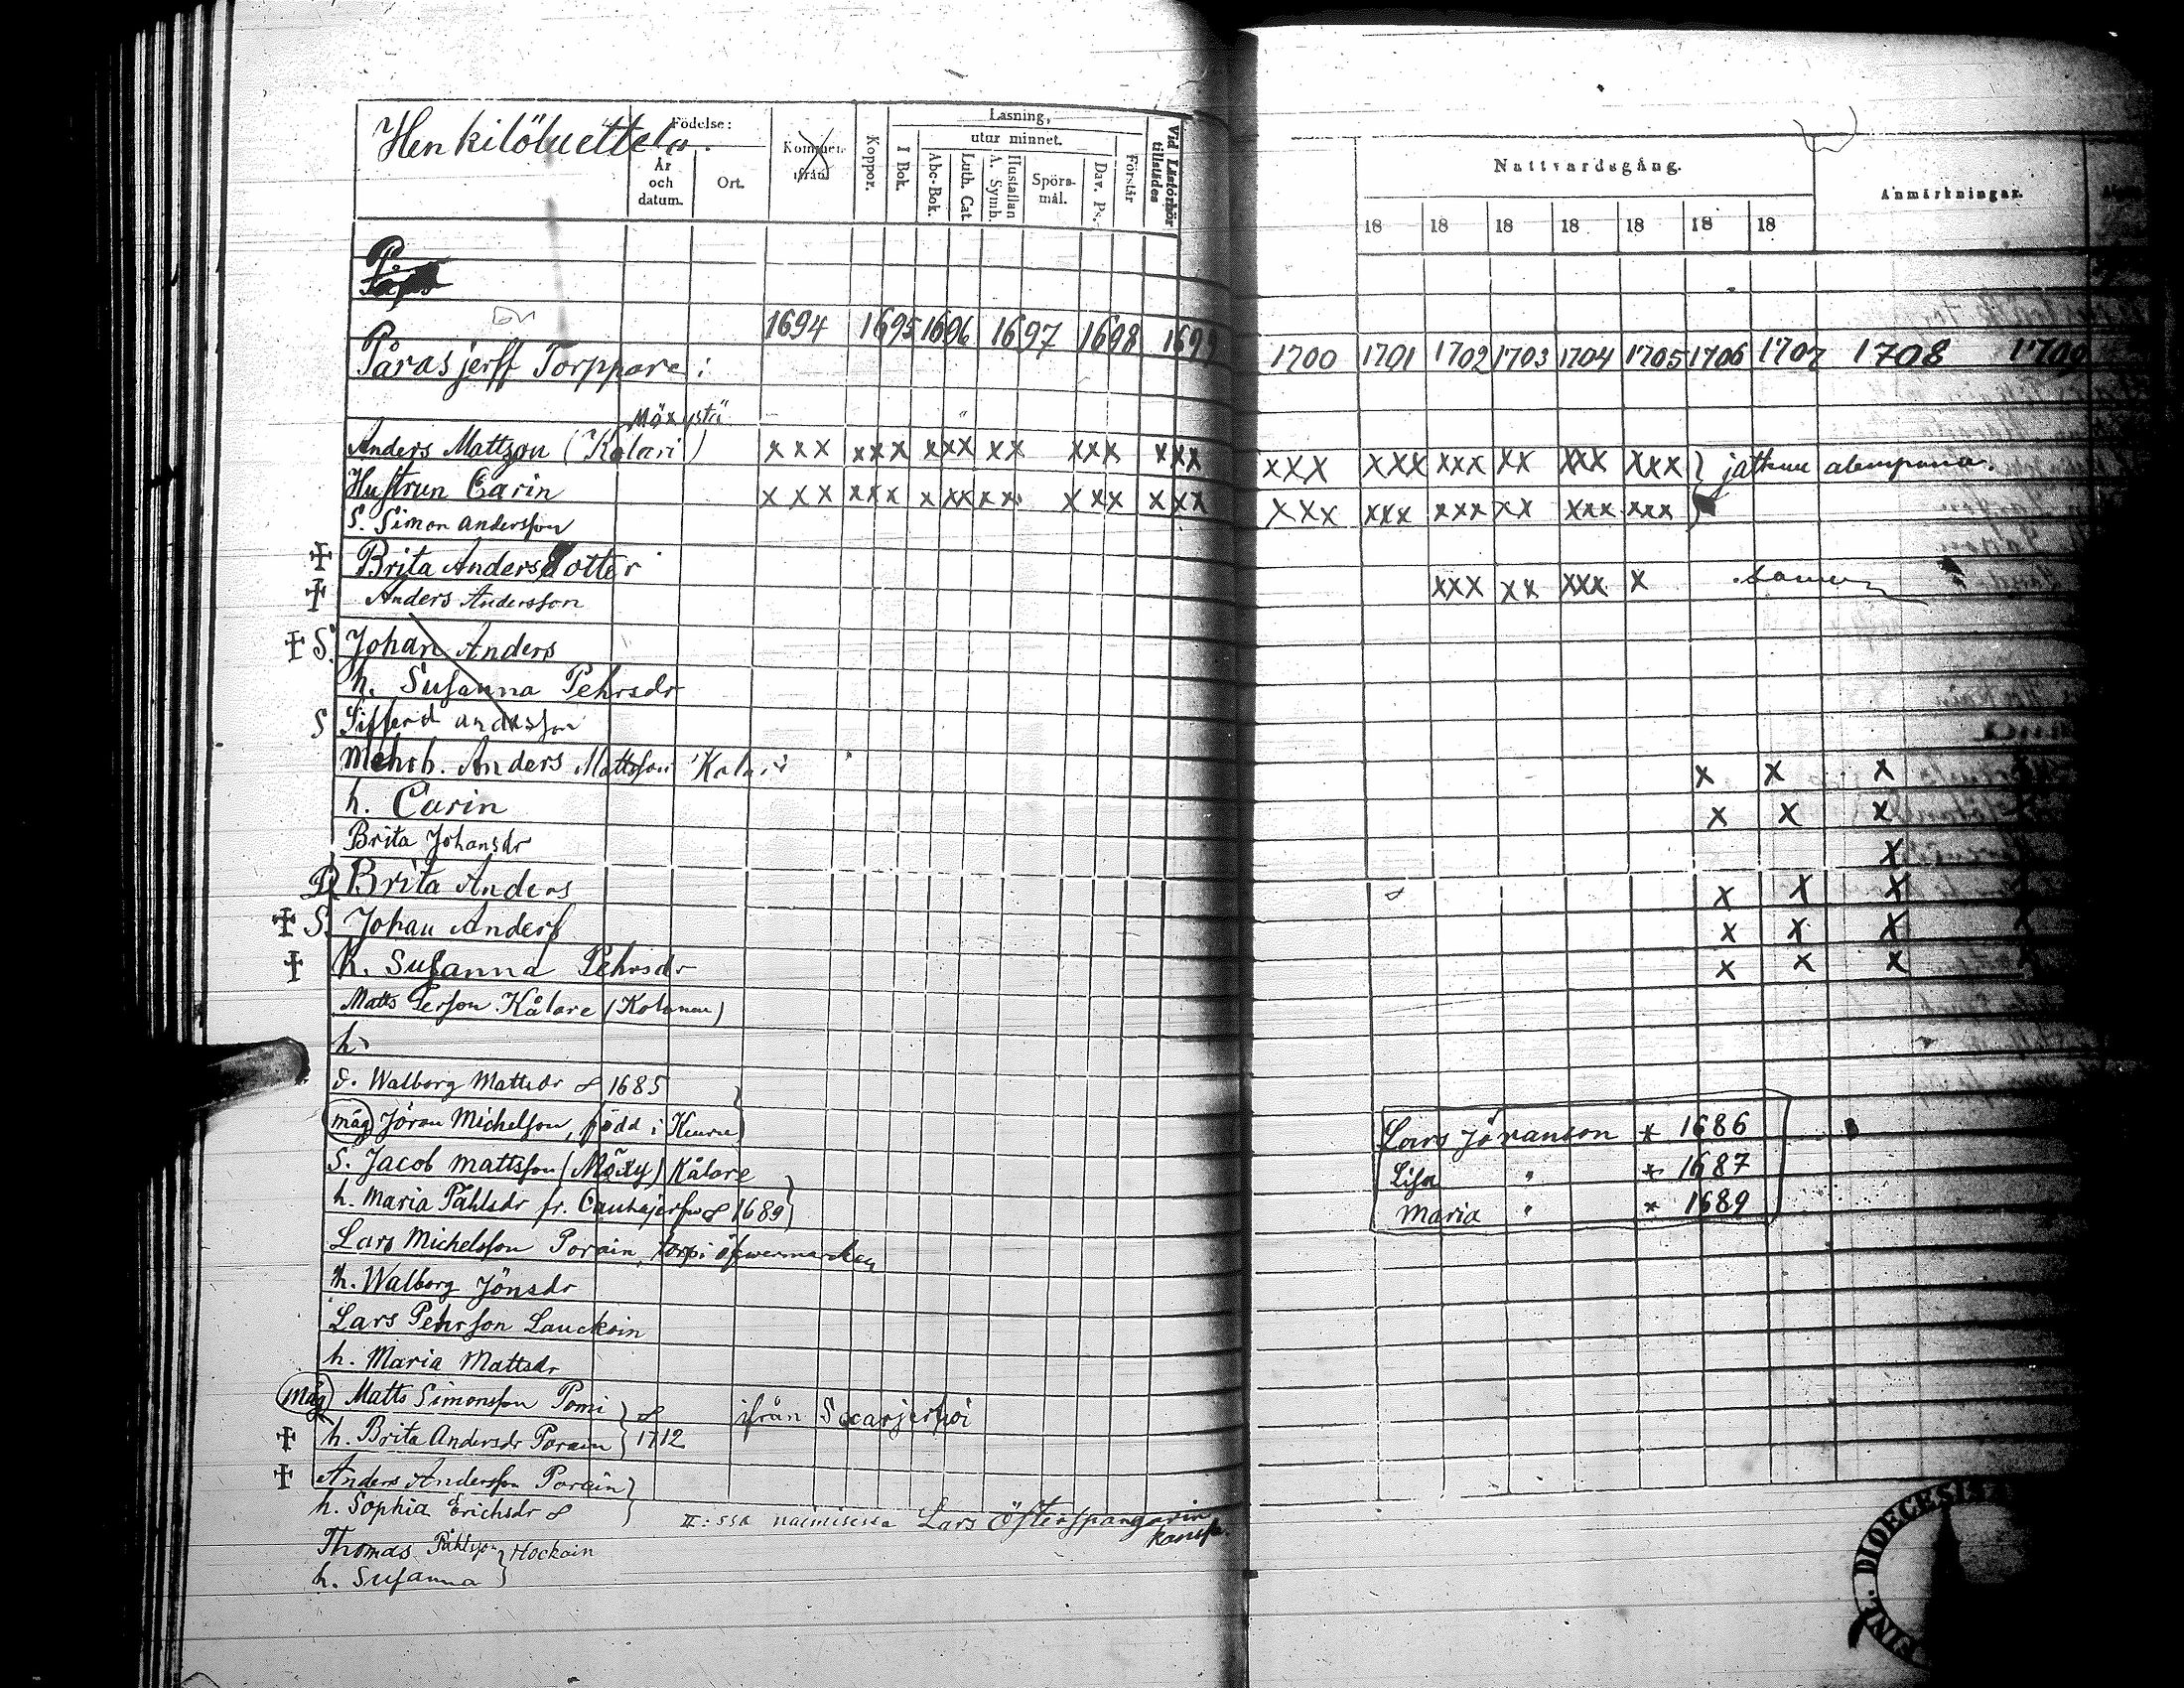 Henkilöluettelo.
Födelse:
År och datum.
Ort.
Kommen ifrån
Koppor.
Läsning,
I Bok.
utur minnet.
Abc-Bok.
Luth. Cat.
Hustaflan A. Symb.
Spörs-mål.
Dav. Ps.
Förstår
Vid Läsförhör tillstädes
Nattvardsgång.
18 18 18 18 18 18 18
Anmärkningar.
1694 1695 1696 1697 1698 1699 1700 1701 1702 1703 1704 1705 1706 1707 1708 1709
Pårasjerff Torppare:
Möxystä
Anders Mattzon (Kolari) xxx xxx xxx xx xxx xxx xxx xxx xxx xx xxx xxx } jatkuu alempana.
Hustrun Carin xxx xxx xxx xx xxx xxx xxx xxx xxx xx xxx xxx }
S. Simon andersson
Brita Andersdotter
Anders Andersson xxx xx xxx x
S. Johan Anders
h. Susanna Pehrsdr
S Sifferd andersson
Mehrb. Anders Mattsson Kolari x x x
h. Carin x x x
Brita Johansdr x
D Brita Anders x x x
S. Johan Anders x x x
h. Susanna Pehrsdr x x x
Matts Person Kålare (Kolanen)
h.
d. Walborg Mattsdr ∞ 1685
måg Jöran Michelson, född i Keuru
S. Jacob Mattsson (Möxy) Kålare
h. Maria Påhlsdr fr. Cauhajerfw ∞ 1689
Lars Jöranson * 1686
Lisa " * 1687
Maria " * 1689
Lars Michelsson Porain, torp i öfwermarcken
h. Walborg Jönsdr
Lars Pehrson Lauckoin
h. Maria Mattsdr
måg Matts Simonsson Pomi } ∞ ifrån
h. Brita Andersdr Porain } 1712
Anders Andersson Porain
h. Sophia Erichsdr ∞ II:ssa naimisessa Lars Österspångarin
kanssa
Thomas Påhlsson } Hockoin
h. Susanna }
DIOECESIS